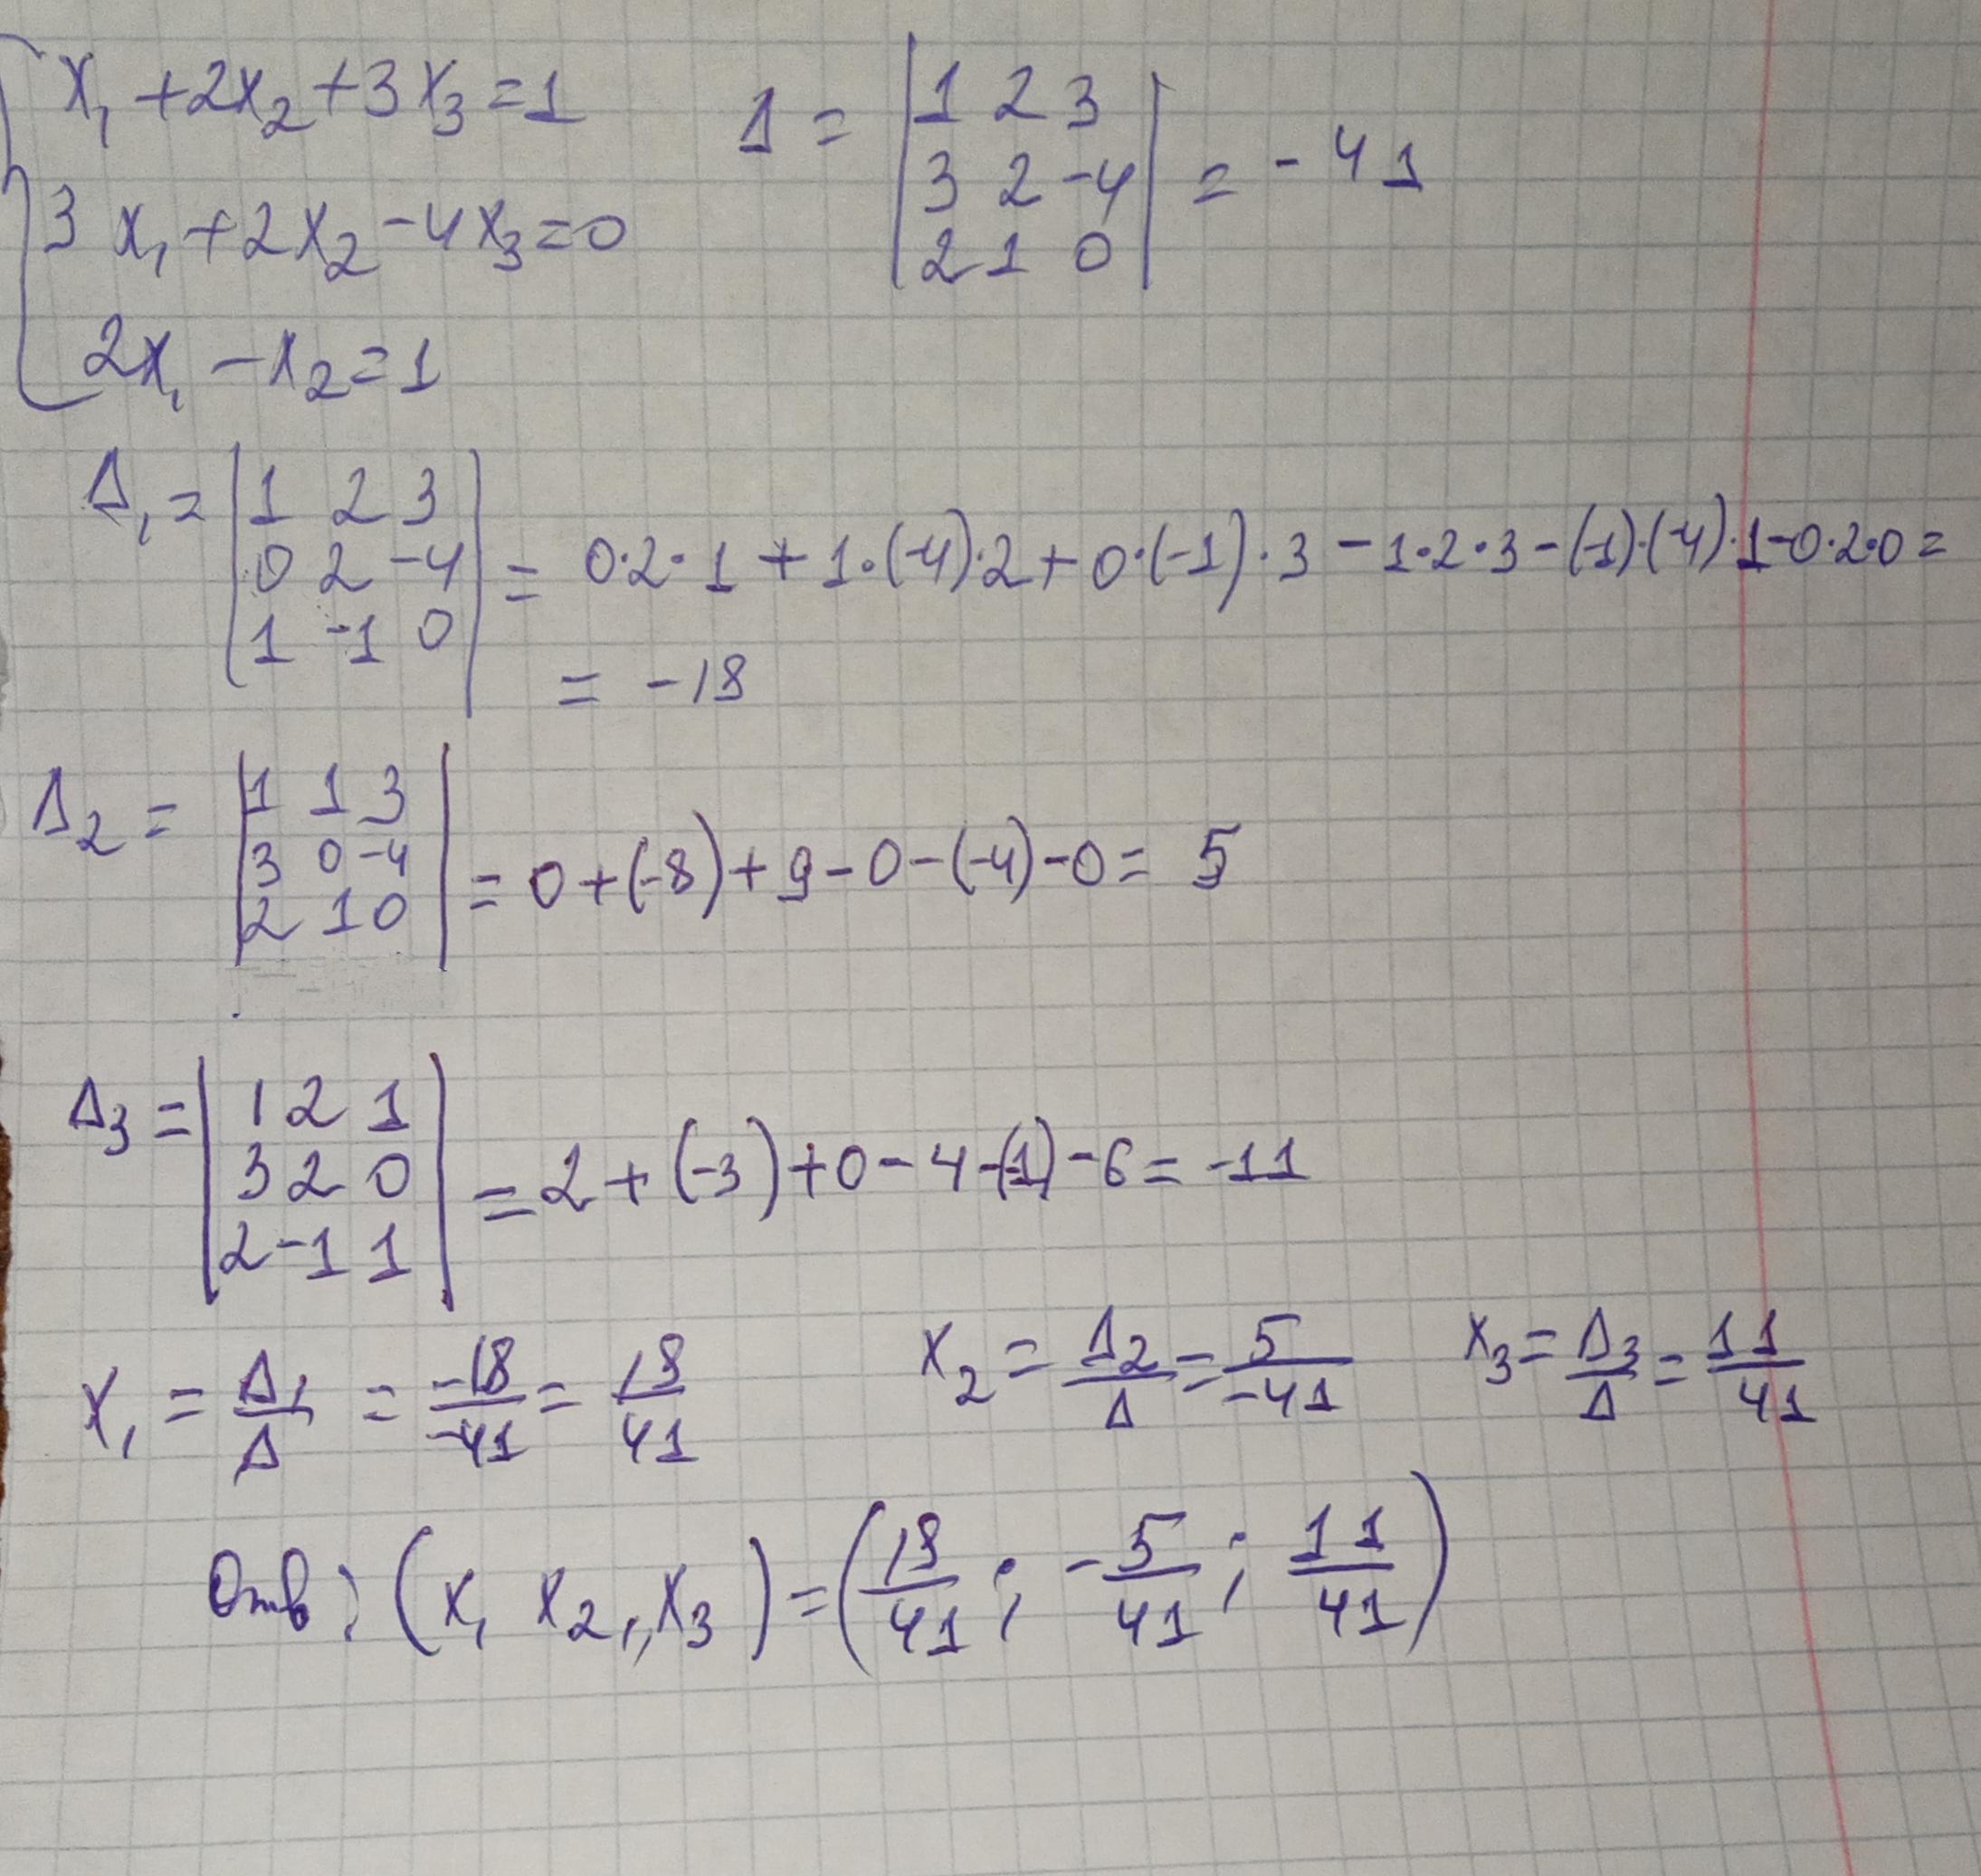 x₁ + 2x₂ + 3x₃ = 1
3x₁ + 2x₂ - 4x₃ = 0
2x₁ - x₂ = 1
Δ = | 1 2 3 |
| 3 2 -4 | = -41
| 2 1 0 |
Δ₁ = | 1 2 3 |
| 0 2 -4 | = 0·2·1 + 1·(-4)·2 + 0·(-1)·3 - 1·2·3 - (-1)·(-4)·1 - 0·2·0 =
| 1 -1 0 |
= -18
Δ₂ = | 1 1 3 |
| 3 0 -4 | = 0 + (-8) + 9 - 0 - (-4) - 0 = 5
| 2 1 0 |
Δ₃ = | 1 2 1 |
| 3 2 0 | = 2 + (-3) + 0 - 4 - (-1) - 6 = -11
| 2 -1 1 |
x₁ = Δ₁/Δ = -18/-41 = 18/41 x₂ = Δ₂/Δ = 5/-41 x₃ = Δ₃/Δ = 11/41
Отв: (x₁ x₂, x₃) = (18/41; -5/41; 11/41)